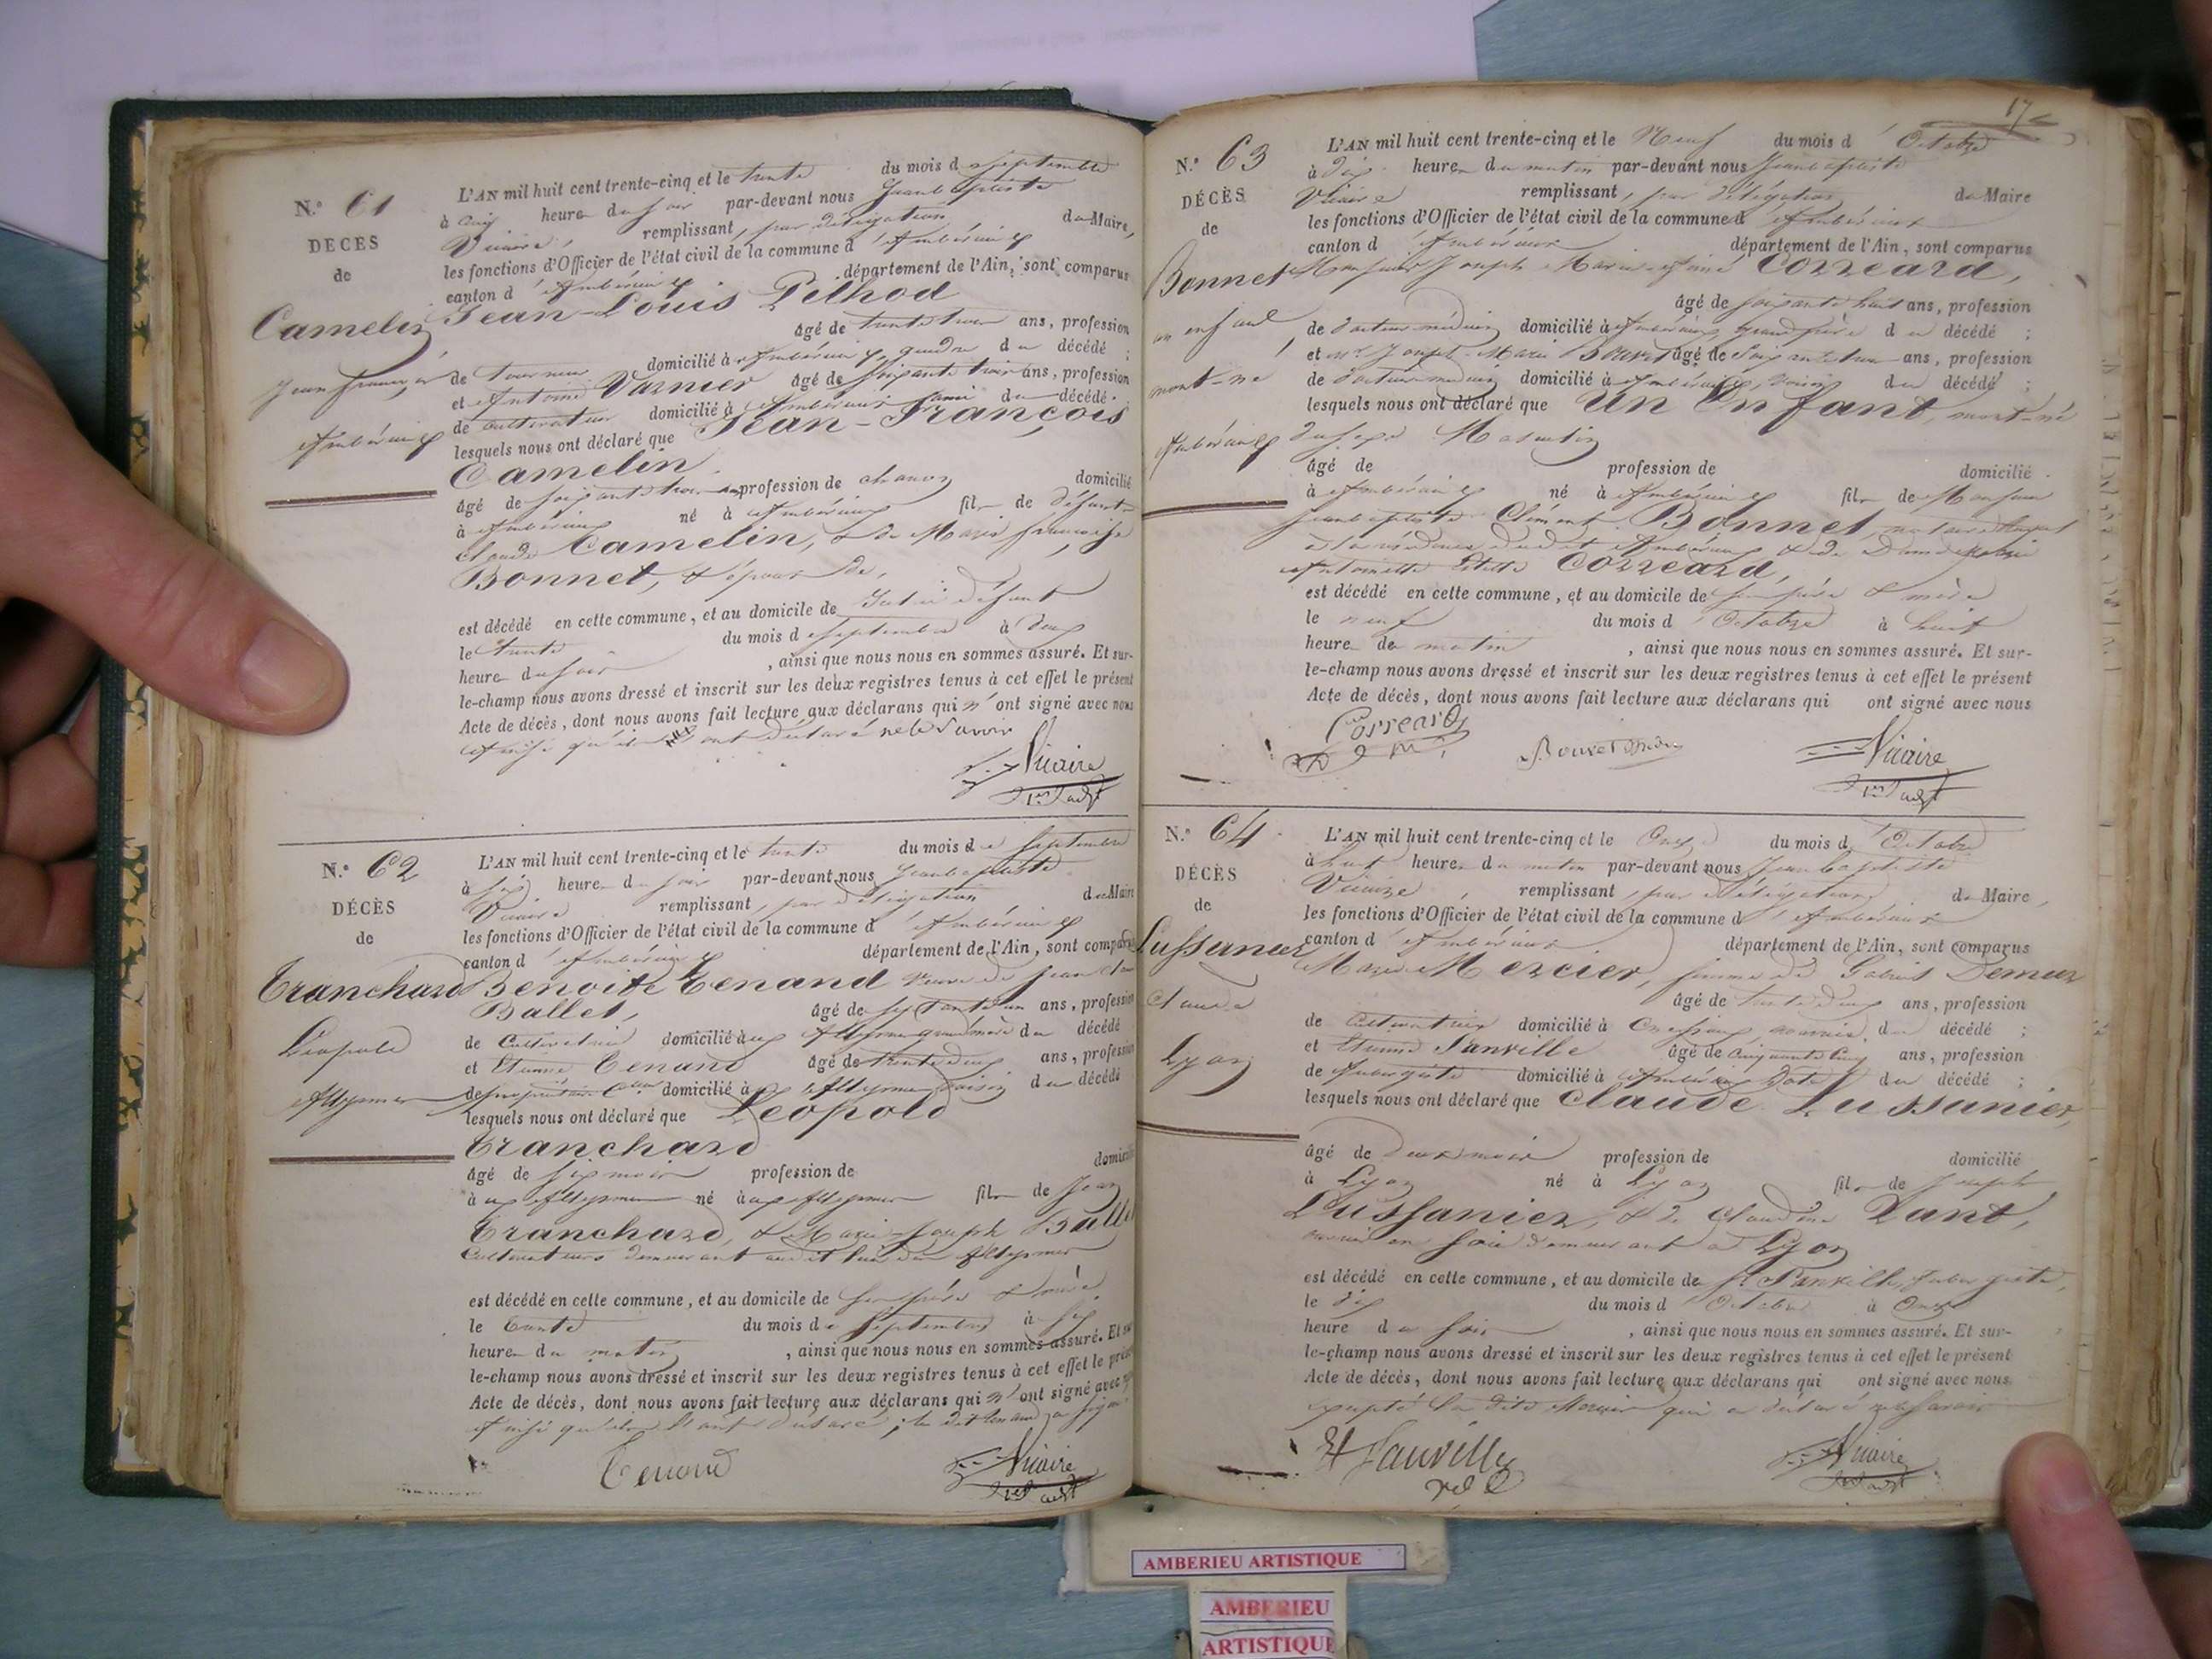 N.° 61
DÉCÈS
de
Camelin
Jean françois
Ambérieux
L'AN mil huit cent trente-cinq et le trente du mois de Septembre
à cinq heures du soir par-devant nous Jean baptiste
Vicaire, remplissant, par délégation du Maire,
les fonctions d'Officier de l'état civil de la commune d'Ambérieux
canton d'Ambérieux département de l'Ain, sont comparus
Jean-Louis Pelhod
âgé de trente trois ans, profession
de tourneur domicilié à Ambérieux, gendre du décédé ;
et Antoine Varnier âgé de soixante trois ans, profession
de cultivateur domicilié à Ambérieux ami du décédé
lesquels nous ont déclaré que Jean-François
Camelin
âgé de soixante trois ans profession de domicilié
à Ambérieux né à Ambérieux fils de défunts
Claude Camelin, & de Marie françoise
Bonnet, & époux de,
est décédé en cette commune, et au domicile de défunt
le trente du mois de Septembre à deux
heures du soir , ainsi que nous nous en sommes assuré. Et sur-
le-champ nous avons dressé et inscrit sur les deux registres tenus à cet effet le présent
Acte de décès, dont nous avons fait lecture aux déclarans qui n'ont signé avec nous
qu'ils ont déclaré ne le savoir
Vicaire
N.° 62
DÉCÈS
de
Tranchard
Léopold
Allymes
L'AN mil huit cent trente-cinq et le trente du mois de Septembre
à six heures du soir par-devant nous Jean baptiste
Vicaire remplissant, par délégation du Maire
les fonctions d'Officier de l'état civil de la commune d'Ambérieux
canton d'Ambérieux département de l'Ain, sont comparus
Benoite Tenand veuve de Jean
Ballet, âgé de septante un ans, profession
de Cultivatrice domicilié aux Allymes grand'mère du décédé
et Etienne Tenand âgé de trente deux ans, profession
de propriétaire domicilié aux Allymes voisin du décédé
lesquels nous ont déclaré que Léopold
Tranchard
âgé de six mois profession de domicilié
à aux Allymes né à aux Allymes fils de Jean
Tranchard, & Marie Joseph Ballet
Cultivateurs demeurant audit lieu des Allymes
est décédé en cette commune, et au domicile de ses père & mère
le trente du mois de Septembre à six
heures du matin , ainsi que nous nous en sommes assuré. Et sur
le-champ nous avons dressé et inscrit sur les deux registres tenus à cet effet le présent
Acte de décès, dont nous avons fait lecture aux déclarans qui n'ont signé avec
Tenand
Vicaire
17
N.° 63
DÉCÈS
de
Bonnet
un enfant
mort-né
Ambérieux
L'AN mil huit cent trente-cinq et le Neuf du mois d'Octobre
à dix heures du matin par-devant nous Jean baptiste
Vicaire remplissant, par délégation du Maire
les fonctions d'Officier de l'état civil de la commune d'Ambérieux
canton d'Ambérieux département de l'Ain, sont comparus
Monsieur Joseph Marie Correard,
âgé de soixante huit ans, profession
de docteur médecin domicilié à Ambérieux, grand père du décédé ;
et Mr Joseph-Marie Bouvet âgé de ans, profession
de docteur médecin domicilié à Ambérieux, voisin du décédé ;
lesquels nous ont déclaré que Un Enfant, mort-né
du sexe Masculin
âgé de profession de domicilié
à Ambérieux né à Ambérieux fils de Monsieur
Jean baptiste Clément Bonnet, notaire
à la résidence dudit Ambérieux & de Dame
Antoinette Correard,
est décédé en cette commune, et au domicile de ses père & mère
le neuf du mois d'Octobre à huit
heures du matin , ainsi que nous nous en sommes assuré. Et sur-
le-champ nous avons dressé et inscrit sur les deux registres tenus à cet effet le présent
Acte de décès, dont nous avons fait lecture aux déclarans qui ont signé avec nous
Correard
Bouvet
Vicaire
N.° 64
DÉCÈS
de
Lussanier
Claude
Lyon
L'AN mil huit cent trente-cinq et le Onze du mois d'Octobre
à huit heures du matin par-devant nous Jean baptiste
Vicaire, remplissant, par délégation, du Maire,
les fonctions d'Officier de l'état civil de la commune d'Ambérieux
canton d'Ambérieux département de l'Ain, sont comparus
Marie Mercier, femme de Gabriel Demeur
âgé de trente deux ans, profession
de Cultivatrice domicilié à du décédé ;
et Etienne Janville âgé de cinquante cinq ans, profession
de Aubergiste domicilié à Ambérieux du décédé ;
lesquels nous ont déclaré que Claude Lussanier,
âgé de deux mois profession de domicilié
à Lyon né à Lyon fils de Joseph
Lussanier, & de Claudine
en soie demeurant à Lyon
est décédé en cette commune, et au domicile de Sr Janville, Aubergiste,
le dix du mois d'Octobre à Onze
heures du soir , ainsi que nous nous en sommes assuré. Et sur-
le-champ nous avons dressé et inscrit sur les deux registres tenus à cet effet le présent
Acte de décès, dont nous avons fait lecture aux déclarans qui ont signé avec nous
excepté la dite Mercier qui a déclaré ne le savoir
Janville
Vicaire
AMBERIEU ARTISTIQUE
AMBERIEU
ARTISTIQUE